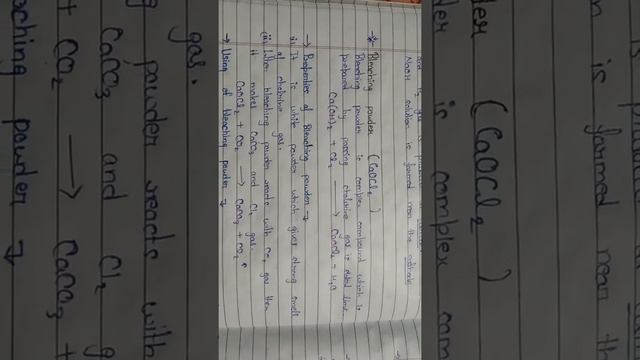 NaOH solution is formed near the cathode
Bleaching powder (CaOCl2 )
Bleaching powder is complex combound which is
prepared by passing chalorine gas in
Ca(OH)2 + Cl2 → CaOCl2 + H2O
→ Properties of Bleaching powder →
i) It is white powder which gives strong smell
of chalorine gas.
(ii) When bleaching powder reacts with CO2 gas then
it makes CaCO3 and Cl2 gas.
CaOCl2 + CO2 → CaCO3 + CO2 ↑
→ Using of Bleaching powder →
gas.
powder reacts with
CaCO3 and Cl2 g
+ CO2 → CaCO3 +
aching powder →
n is formed near th
der (CaOCl2 )
der is complex com